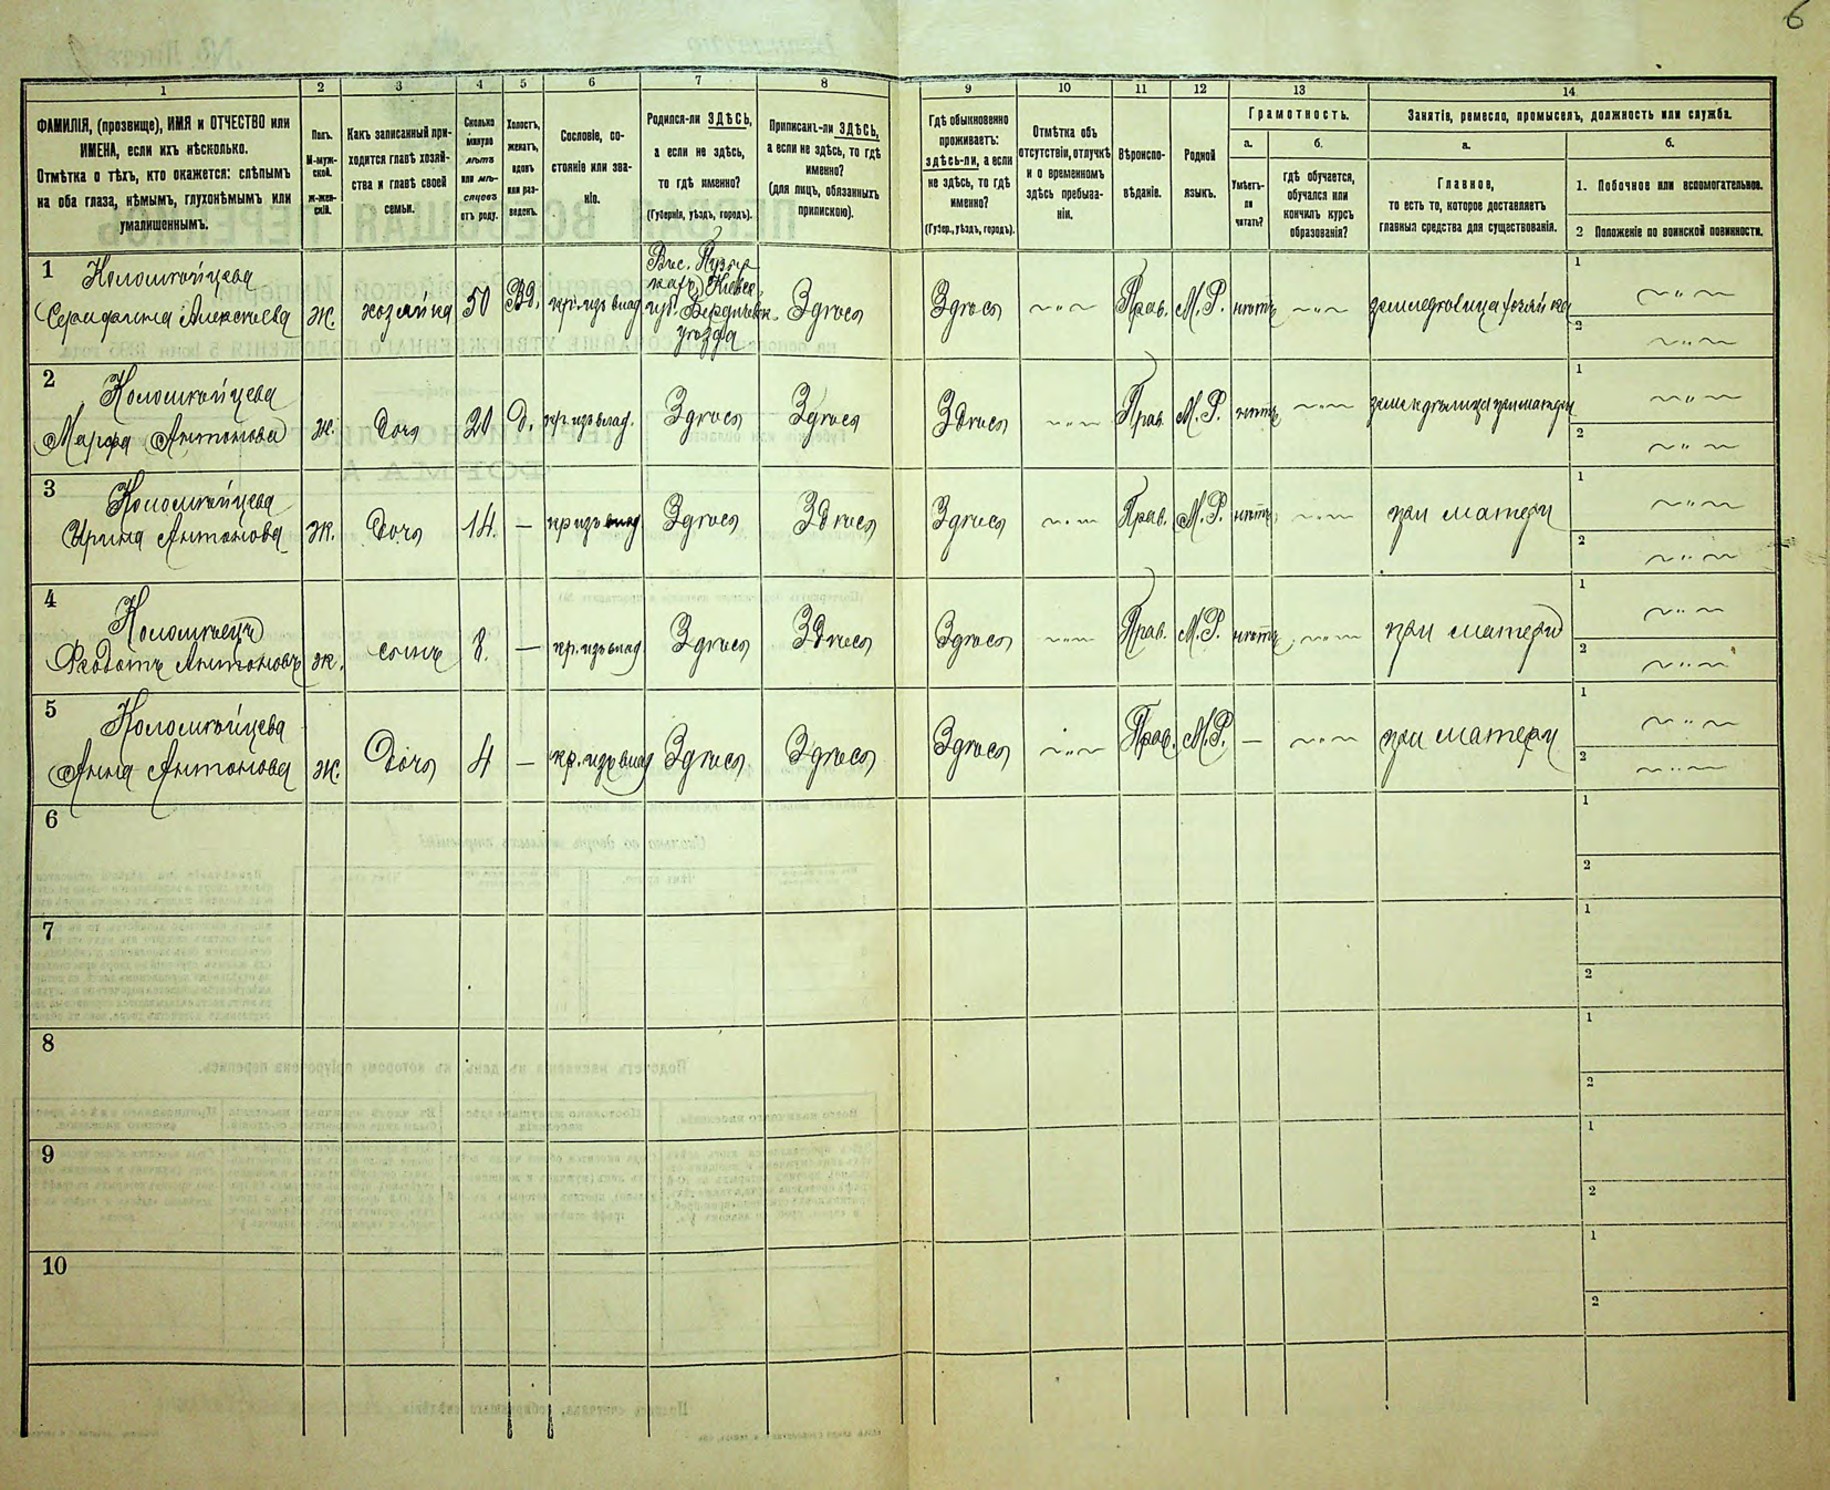 6
1 2 3 4 5 6 7 8 9 10 11 12 13 14
ФАМИЛІЯ, (прозвище), ИМЯ и ОТЧЕСТВО или
ИМЕНА, если ихъ нѣсколько.
Отмѣтка о тѣхъ, кто окажется: слѣпымъ
на оба глаза, нѣмымъ, глухонѣмымъ или
умалишеннымъ.
Полъ.
М-муж-
ской.
ж-жен-
скій.
Какъ записанный при-
ходится главѣ хозяй-
ства и главѣ своей
семьи.
Сколько
минуло
лѣтъ
или мѣ-
сяцевъ
отъ роду.
Холостъ,
женатъ,
вдовъ
или раз-
веденъ.
Сословіе, со-
стояніе или зва-
ніе.
Родился-ли ЗДѢСЬ,
а если не здѣсь,
то гдѣ именно?
(Губернія, уѣздъ, городъ).
Приписанъ-ли ЗДѢСЬ,
а если не здѣсь, то гдѣ
именно?
(для лицъ, обязанныхъ
припискою).
Гдѣ обыкновенно
проживаетъ:
здѣсь-ли, а если
не здѣсь, то гдѣ
именно?
(Губер., уѣздъ, городъ).
Отмѣтка объ
отсутствіи, отлучкѣ
и о временномъ
здѣсь пребыва-
ніи.
Вѣроиспо-
вѣданіе.
Родной
языкъ.
Грамотность.
а.
Умѣетъ-
ли
читать?
б.
гдѣ обучается,
обучался или
кончилъ курсъ
образованія?
Занятія, ремесло, промыселъ, должность или служба.
а.
Главное,
то есть то, которое доставляетъ
главныя средства для существованія.
б.
1. Побочное или вспомогательное.
2 Положеніе по воинской повинности.
1 Коломыйцева
Серафима Алексѣева ж. хозяйка 50 Вд. кр. изъ влад. Здѣсь Здѣсь Прав. М. Р. нѣтъ
губ. Бердичевск.
уѣзда
2 Коломыйцева
Марфа Антонова ж. дочь 20 д. кр. изъ влад. Здѣсь Здѣсь Здѣсь Прав. М. Р. нѣтъ
3 Коломыйцева
Ирина Антонова ж. дочь 14. — кр. изъ влад Здѣсь Здѣсь Здѣсь Прав. М. Р. нѣтъ при матери
4 Коломыецъ
Ѳеодотъ Антоновъ ж. сынъ 8. — кр. изъ влад Здѣсь Здѣсь Здѣсь Прав. М. Р. нѣтъ при матери
5 Коломыйцева
Анна Антонова ж. Дочь 4 — кр. изъ влад Здѣсь Здѣсь Здѣсь Прав. М. Р. — при матери
6
7
8
9
10